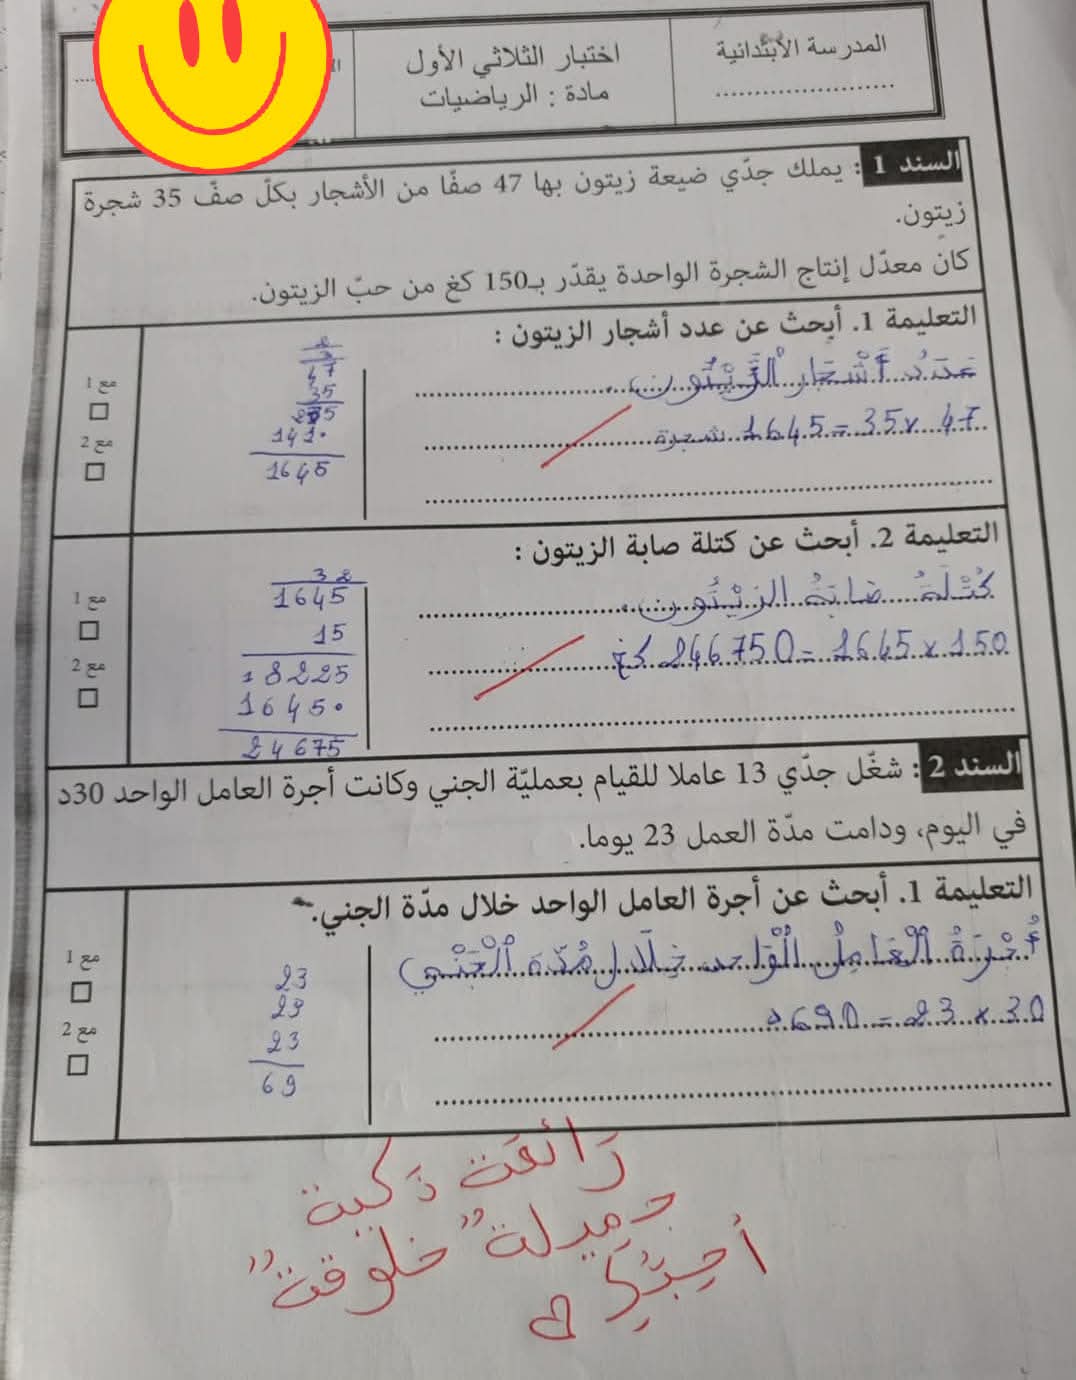 المدرسة الابتدائية
..............................
اختبار الثلاثي الأول
مادة : الرياضيات
السند 1 : يملك جدّي ضيعة زيتون بها 47 صفّا من الأشجار بكلّ صفّ 35 شجرة
زيتون.
كان معدّل إنتاج الشجرة الواحدة يقدّر بـ150 كغ من حبّ الزيتون.
التعليمة 1. أبحث عن عدد أشجار الزيتون :
عَدَدُ أَشْجَارِ الزَّيْتُونِ
47 × 35 = 1645 شجرة
47
35
235
141•
1645
مع 1
مع 2
التعليمة 2. أبحث عن كتلة صابة الزيتون :
كُتْلَةُ صَابَةُ الزَيْتُونِ
150 × 1645 = 246750 كغ
32
1645
15
8225
1645•
24675
مع 1
مع 2
السند 2 : شغّل جدّي 13 عاملا للقيام بعمليّة الجني وكانت أجرة العامل الواحد 30د
في اليوم، ودامت مدّة العمل 23 يوما.
التعليمة 1. أبحث عن أجرة العامل الواحد خلال مدّة الجني.
أُجْرَةُ الْعَامِلِ الْوَاحِدِ خِلَالَ مُدَّةِ الْجَنْيِ
30 × 23 = 690د
23
23
23
69
مع 1
مع 2
رَائعة ذَكية
جميلة "خلوقة"
أُحِبُّكِ ♡